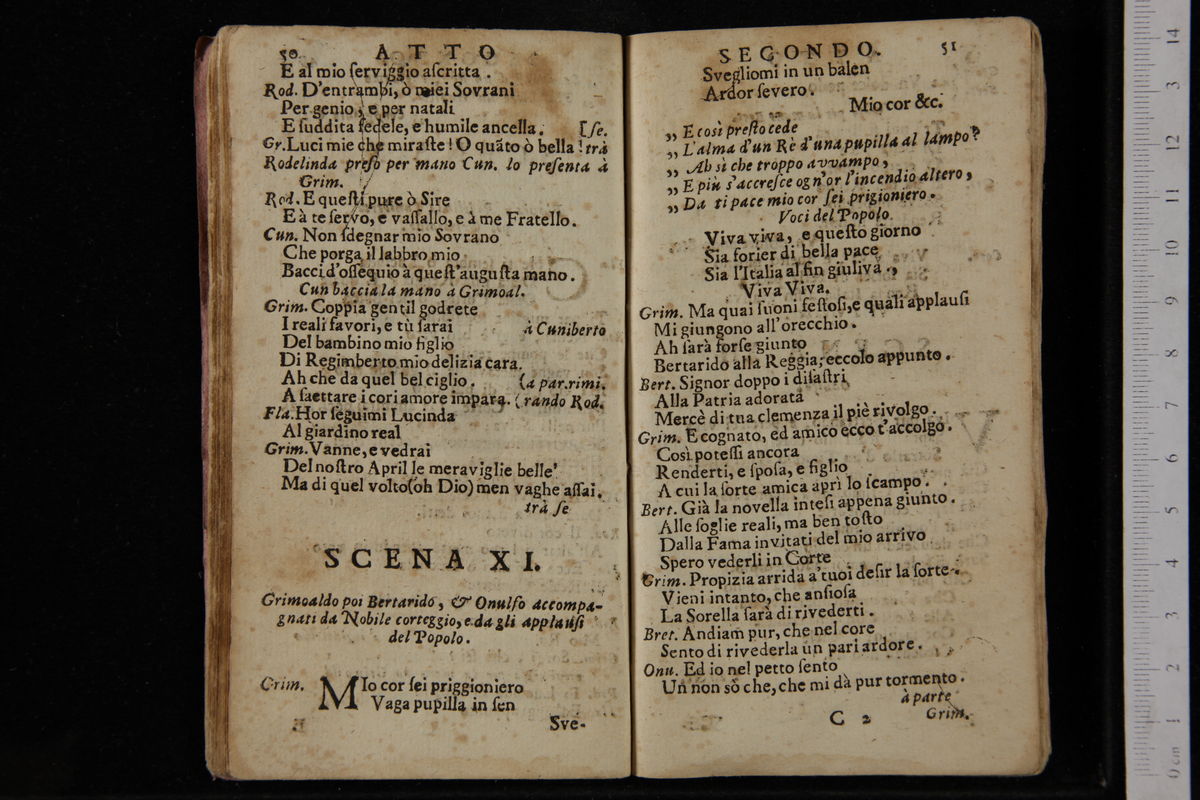 50 ATTO
E al mio ſerviggio aſcritta.
Rod. D'entrambi, ò miei Sovrani
Per genio, e per natali
E ſuddita fedele, e humile ancella. [ſe.
Gr. Luci mie che miraſte! O quãto ò bella! trà
Rodelinda preſo per mano Cun. lo preſenta à
Grim.
Rod. E queſti pure ò Sire
E à te ſervo, e vaſſallo, e à me Fratello.
Cun. Non ſdegnar mio Sovrano
Che porga il labbro mio
Bacci d'oſſequio à queſt'auguſta mano.
Cun baccia la mano à Grimoal.
Grim. Coppia gentil godrete
I reali favori, e tù ſarai à Cuniberto
Del bambino mio figlio
Di Regimberto mio delizia cara.
Ah che da quel bel ciglio. (a par.rimi.
A ſaettare i cori amore impara. (rando Rod.
Fla. Hor ſeguimi Lucinda
Al giardino real
Grim. Vanne, e vedrai
Del noſtro April le meraviglie belle'
Ma di quel volto (oh Dio) men vaghe aſſai.
trà ſe
SCENA XI.
Grimoaldo poi Bertarido, & Onulfo accompa-
gnati da Nobile corteggio, e da gli applauſi
del Popolo.
Grim. MIo cor ſei priggioniero
Vaga pupilla in ſen
Sve-
SECONDO. 51
Svegliomi in un balen
Ardor ſevero.
Mio cor &c.
„ E così preſto cede
„ L'alma d'un Rè d'una pupilla al lampo?
„ Ah sì che troppo avvampo,
„ E più s'accreſce ogn'or l'incendio altero,
„ Da ti pace mio cor ſei prigioniero.
Voci del Popolo.
Viva viva, e queſto giorno
Sia forier di bella pace
Sia l'Italia al fin giuliva.,
Viva Viva.
Grim. Ma quai ſuoni feſtoſi, e quali applauſi
Mi giungono all'orecchio.
Ah ſarà forſe giunto
Bertarido alla Reggia; eccolo appunto.
Bert. Signor doppo i diſaſtri
Alla Patria adorata
Mercè di tua clemenza il piè rivolgo.
Grim. E cognato, ed amico ecco t'accolgo.
Così poteſſi ancora
Renderti, e ſpoſa, e figlio
A cui la ſorte amica aprì lo ſcampo.
Bert. Già la novella inteſi appena giunto.
Alle ſoglie reali, ma ben toſto
Dalla Fama invitati del mio arrivo
Spero vederli in Corte
Grim. Propizia arrida a'tuoi deſir la ſorte.
Vieni intanto, che anſioſa
La Sorella ſarà di rivederti.
Bret. Andiam pur, che nel core
Sento di rivederla un pari ardore.
Onu. Ed io nel petto ſento
Un non sò che, che mi dà pur tormento.
à parte
C 2 Grim.
14
13
12
11
10
9
8
7
6
5
4
3
2
1
0 cm